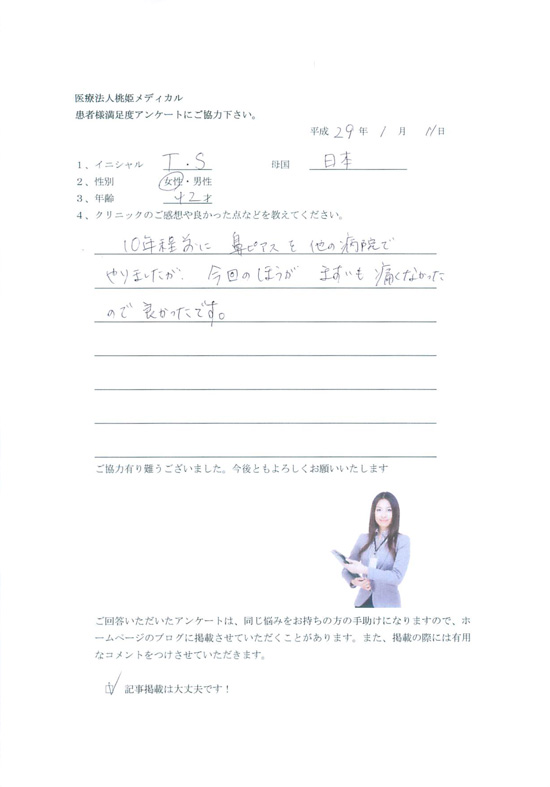 医療法人桃姫メディカル
患者様満足度アンケートにご協力下さい。
平成 29 年 1 月 11 日
1、イニシャル T・S 母国 日本
2、性別 女性・男性
3、年齢 42才
4、クリニックのご感想や良かった点などを教えてください。
10年程前に 鼻ピアスを 他の病院で
やりましたが、今回のほうが ますいも 痛くなかった
ので 良かったです。
ご協力有り難うございました。今後ともよろしくお願いいたします
ご回答いただいたアンケートは、同じ悩みをお持ちの方の手助けになりますので、ホ
ームページのブログに掲載させていただくことがあります。また、掲載の際には有用
なコメントをつけさせていただきます。
記事掲載は大丈夫です！